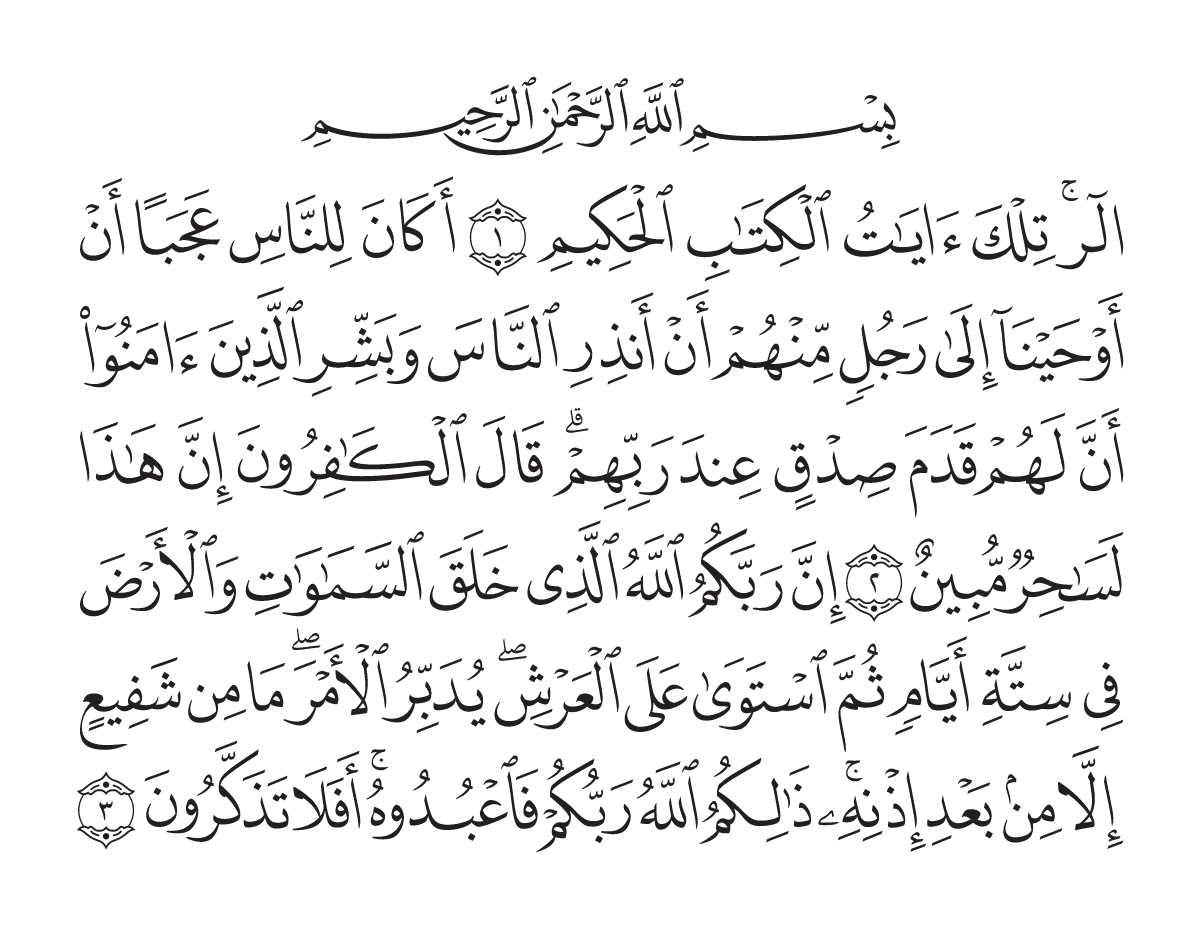 بِسْمِ ٱللَّهِ ٱلرَّحْمَٰنِ ٱلرَّحِيمِ
الٓرۚ تِلْكَ ءَايَٰتُ ٱلْكِتَٰبِ ٱلْحَكِيمِ ١ أَكَانَ لِلنَّاسِ عَجَبًا أَنْ
أَوْحَيْنَآ إِلَىٰ رَجُلٍ مِّنْهُمْ أَنْ أَنذِرِ ٱلنَّاسَ وَبَشِّرِ ٱلَّذِينَ ءَامَنُوٓا۟
أَنَّ لَهُمْ قَدَمَ صِدْقٍ عِندَ رَبِّهِمْۗ قَالَ ٱلْكَٰفِرُونَ إِنَّ هَٰذَا
لَسَٰحِرٌ مُّبِينٌ ٢ إِنَّ رَبَّكُمُ ٱللَّهُ ٱلَّذِى خَلَقَ ٱلسَّمَٰوَٰتِ وَٱلْأَرْضَ
فِى سِتَّةِ أَيَّامٍ ثُمَّ ٱسْتَوَىٰ عَلَى ٱلْعَرْشِۖ يُدَبِّرُ ٱلْأَمْرَۖ مَا مِن شَفِيعٍ
إِلَّا مِنۢ بَعْدِ إِذْنِهِۦۚ ذَٰلِكُمُ ٱللَّهُ رَبُّكُمْ فَٱعْبُدُوهُۚ أَفَلَا تَذَكَّرُونَ ٣